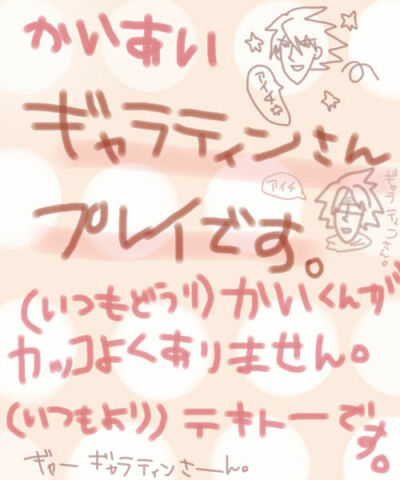 かいあい
アイチ
ギャラティンさん
アイチ
プレイです。
(いつもどうり)かいくんが
カッコよくありません。
(いつもより)テキトーです。
ギャー ギャラティンさーん。